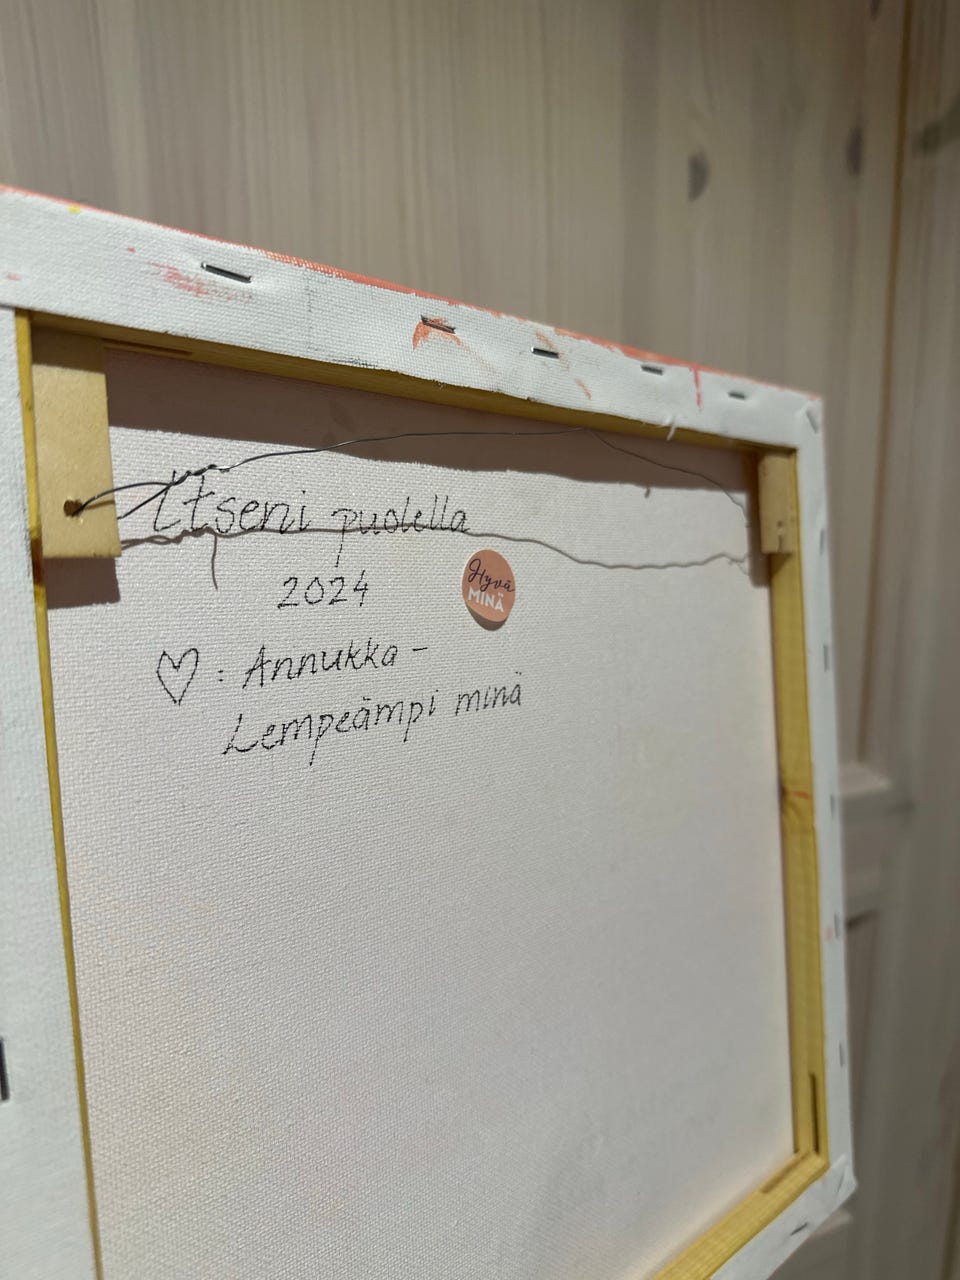 Itseni puolella
2024
Hyvä
MINÄ
♡: Annukka -
Lempeämpi minä